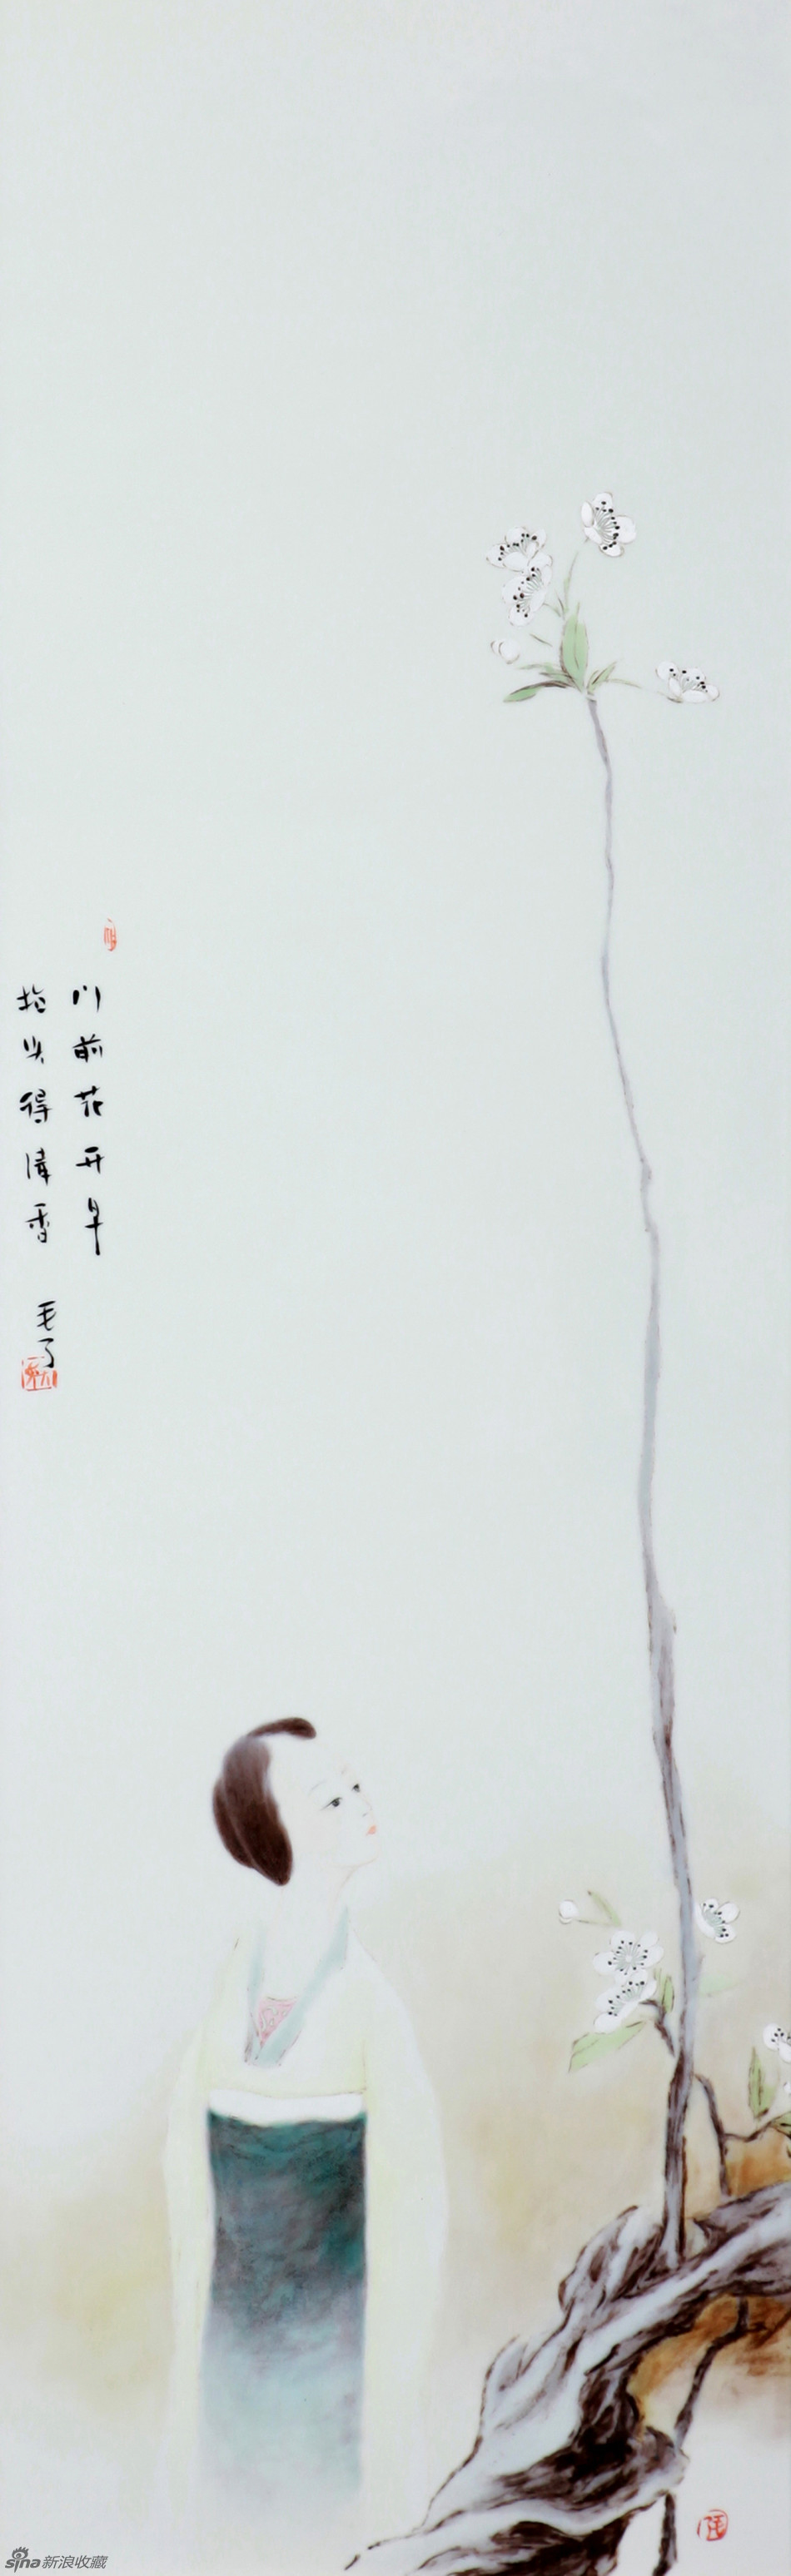 门前花开早
抬头得清香
毛了
sina新浪收藏